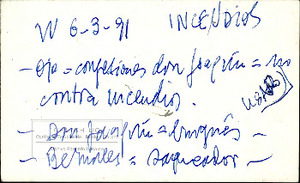 VV 6-3-91 INCENDIOS
- Ojo = confesiones don Joaquín = no
contra incendios.
- Don Joaquín = burgués -
- Bermones = saqueador -